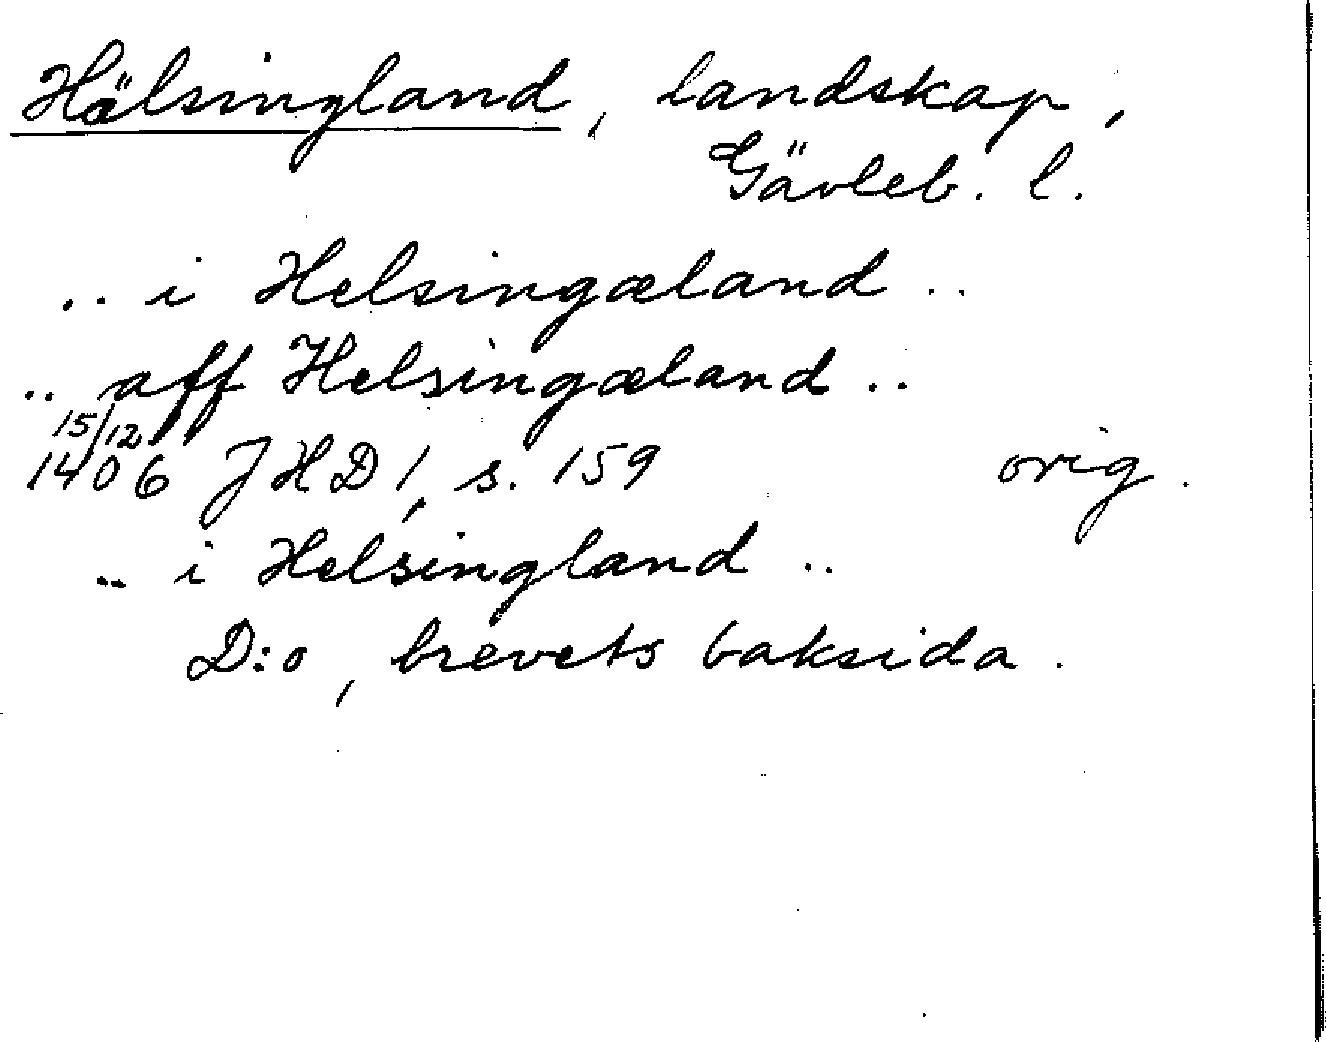 Hälsingland, landskap,
Gävleb. l.
.. i Helsingæland ..
.. aff Helsingæland ..
15/12
1406 JHD 1, s. 159 orig.
.. i Helsingland ..
D:o, brevets baksida.